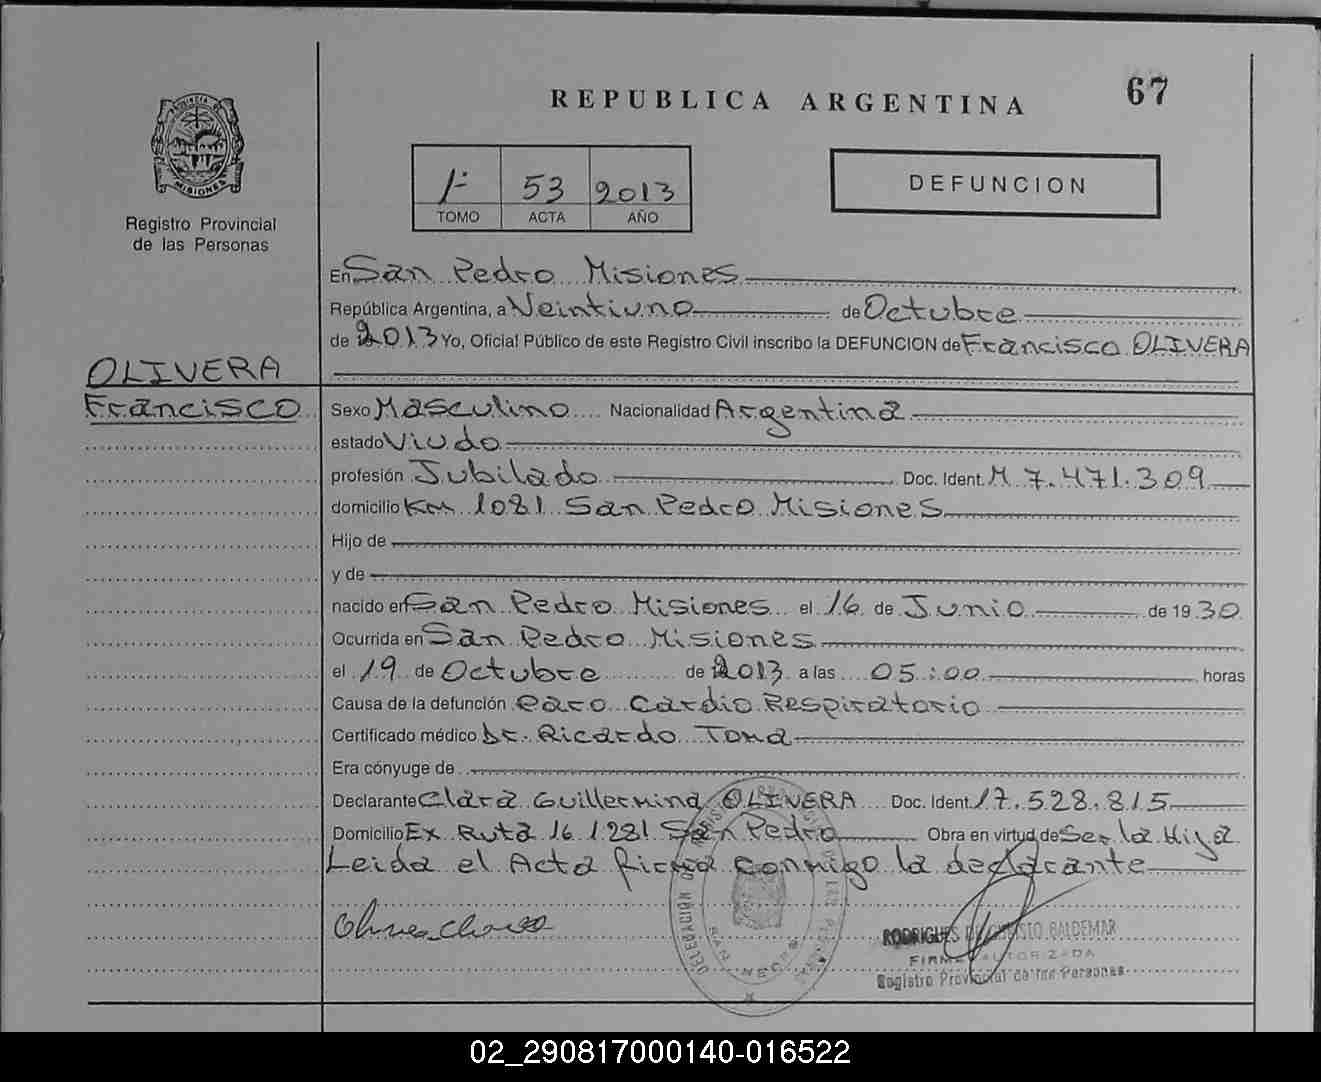 REPUBLICA ARGENTINA
67
PROVINCIA DE
MISIONES
Registro Provincial
de las Personas
1º 53 2013
TOMO ACTA AÑO
DEFUNCION
En San Pedro Misiones
República Argentina, a Veintiuno de Octubre
de 2013 Yo, Oficial Público de este Registro Civil inscribo la DEFUNCION de Francisco OLIVERA
OLIVERA
Francisco
Sexo Masculino Nacionalidad Argentina
estado Viudo
profesión Jubilado Doc. Ident. M 7.471.309
domicilio Km 1081 San Pedro Misiones
Hijo de
y de
nacido en San Pedro Misiones el 16 de Junio de 1930
Ocurrida en San Pedro Misiones
el 19 de Octubre de 2013 a las 05:00 horas
Causa de la defunción Paro Cardio Respiratorio
Certificado médico Dr. Ricardo Toma
Era cónyuge de
Declarante Clara Guillermina OLIVERA Doc. Ident. 17.528.815
Domicilio Ex Ruta 16 1281 San Pedro Obra en virtud de Ser la Hija
Leida el Acta firma conmigo la declarante
RODRIGUES BALDEMAR
FIRMA AUTORIZADA
Registro Provincial de las Personas
02_290817000140-016522